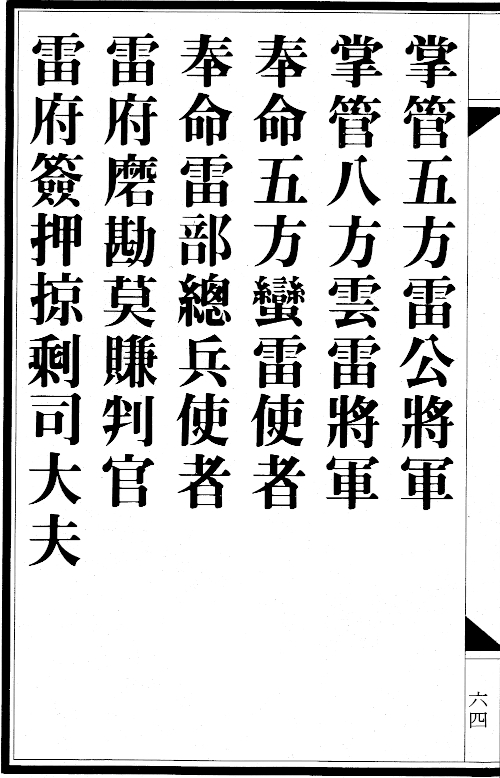 掌管五方雷公將軍
掌管八方雲雷將軍
奉命五方蠻雷使者
奉命雷部總兵使者
雷府磨勘莫賺判官
雷府簽押掠剩司大夫
六四